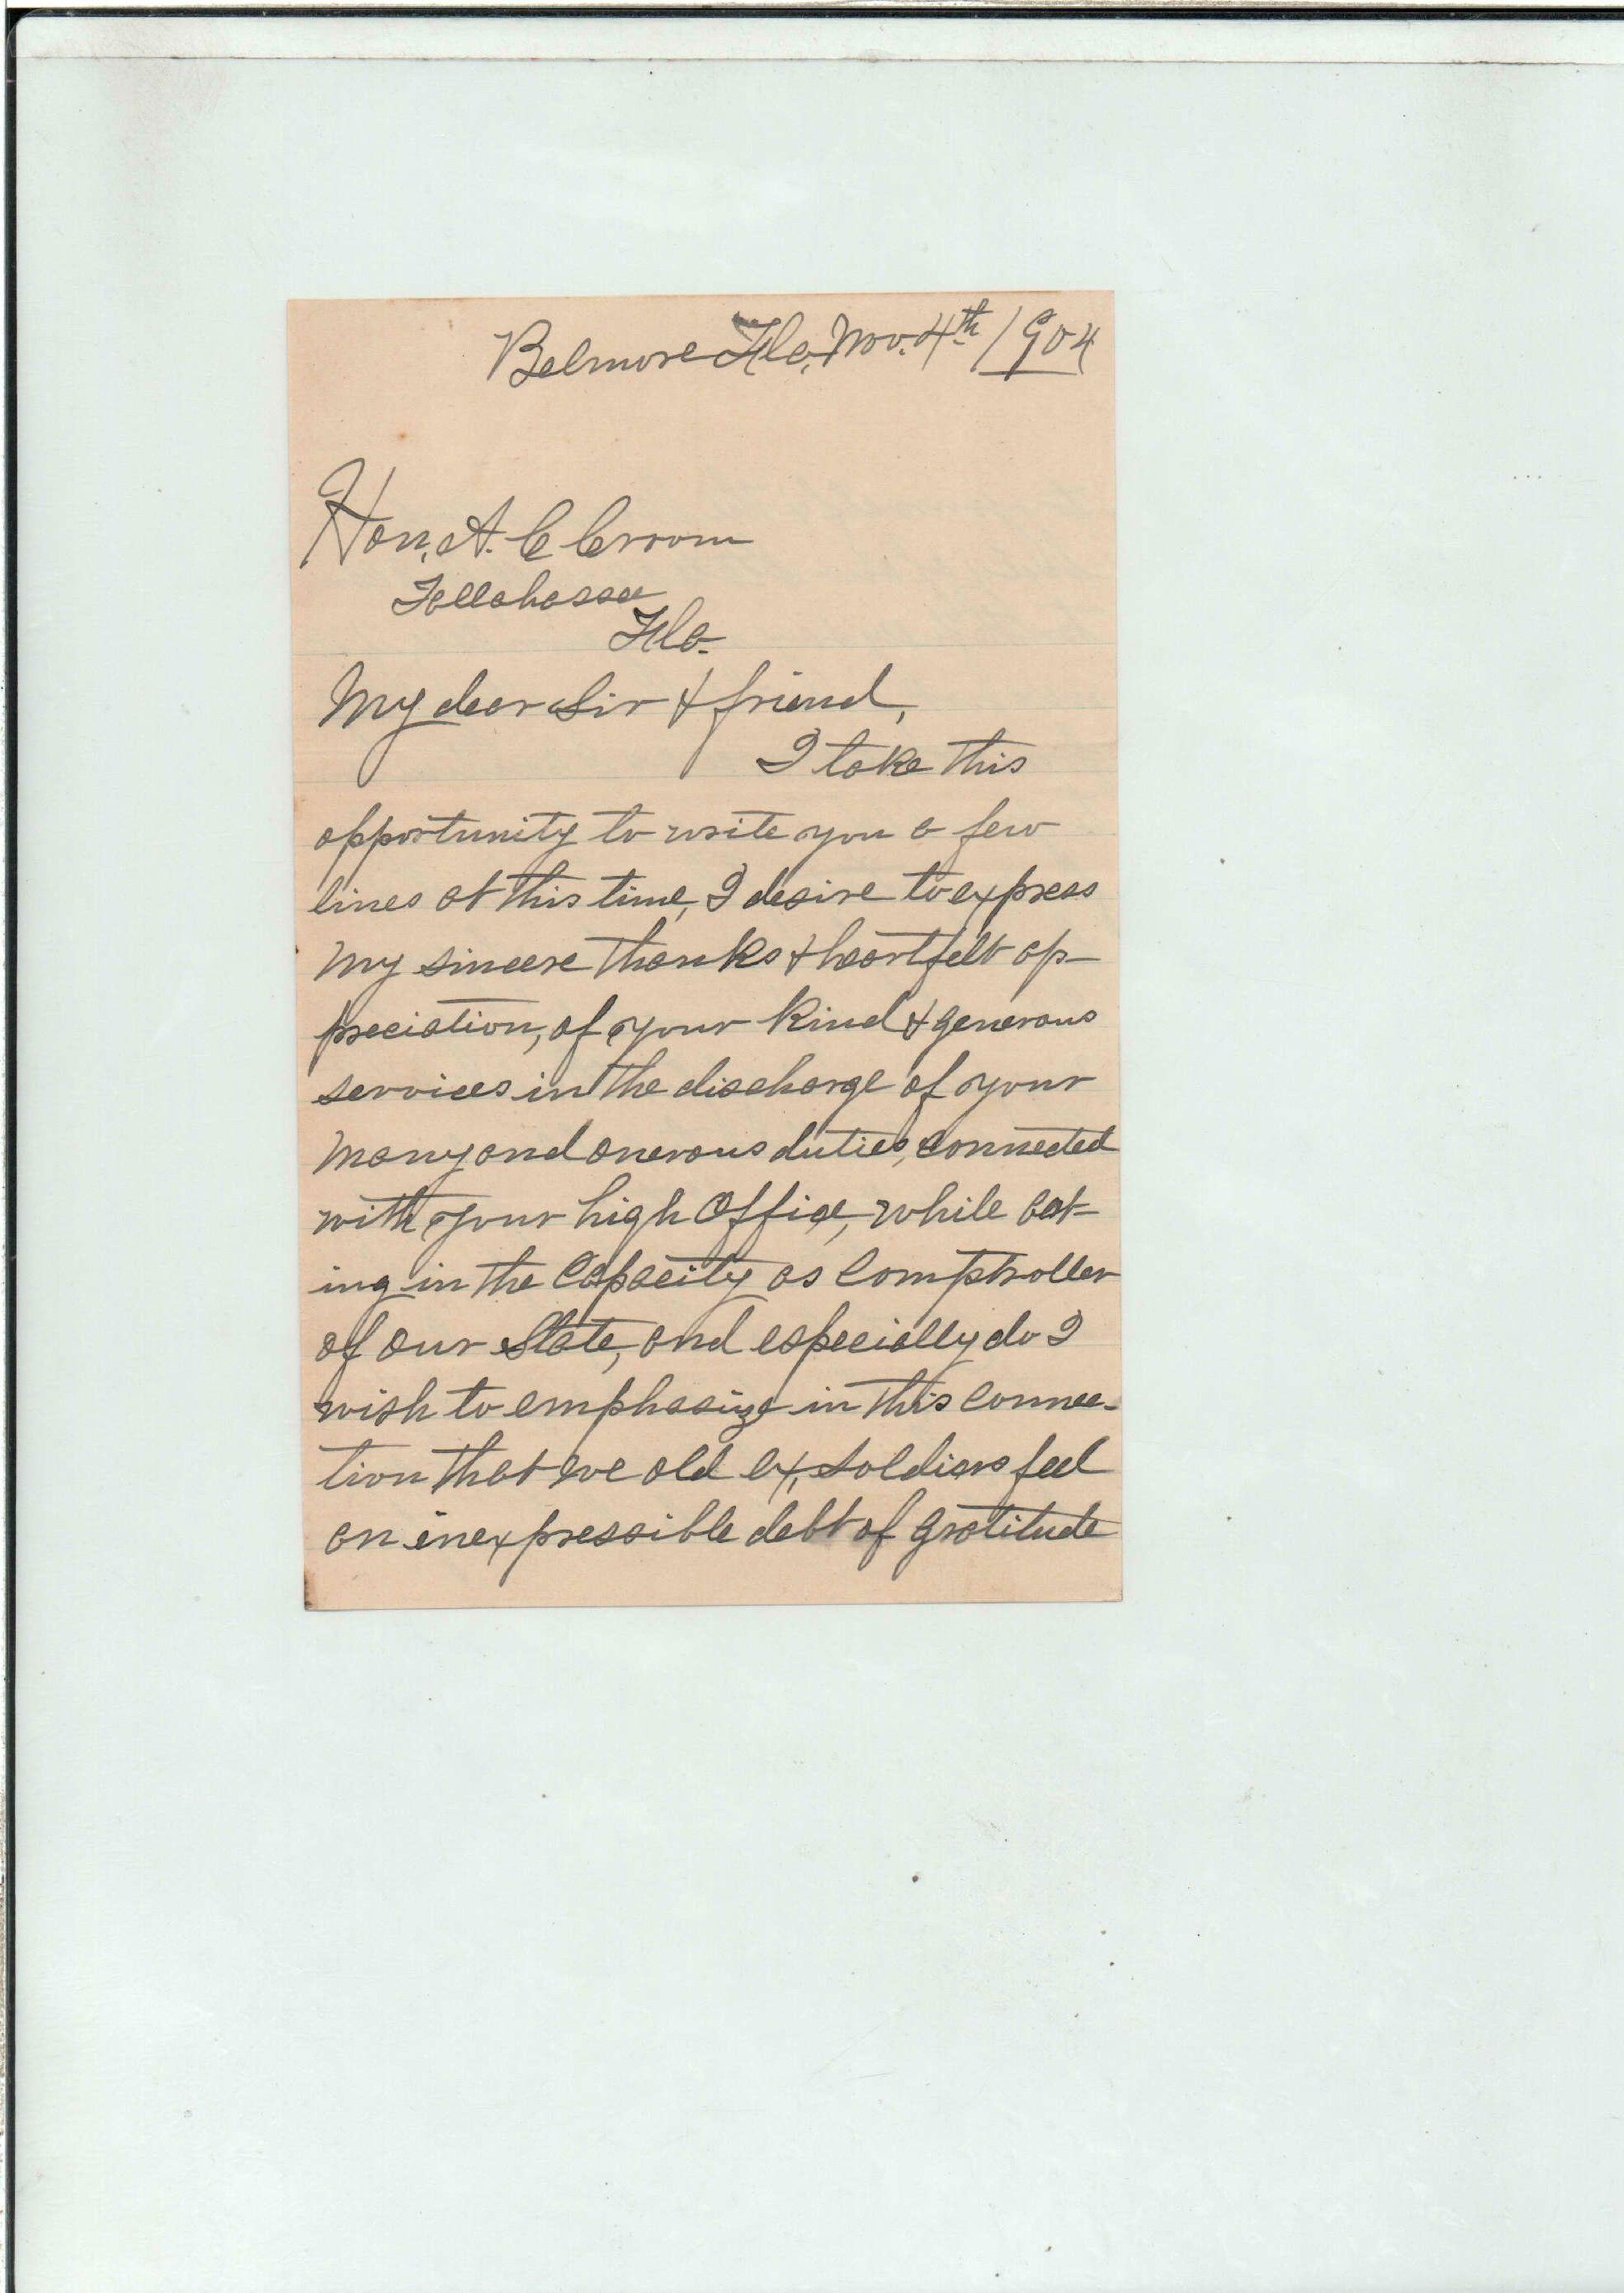 Belmore Fla, Nov. 4th /1904
Hon. A. C Croom
Tallahassee
Fla.
My dear Sir & friend,
I take this
opportunity to write you a few
lines at this time, I desire to express
my sincere thanks & heartfelt ap-
preciation, of your kind & generous
services in the discharge of your
many and onerous duties, connected
with your high office, while act-
ing in the capacity as Comptroller
of our State, and especially do I
wish to emphasize in this connec-
tion that we old ex, soldiers feel
an inexpressible debt of gratitude